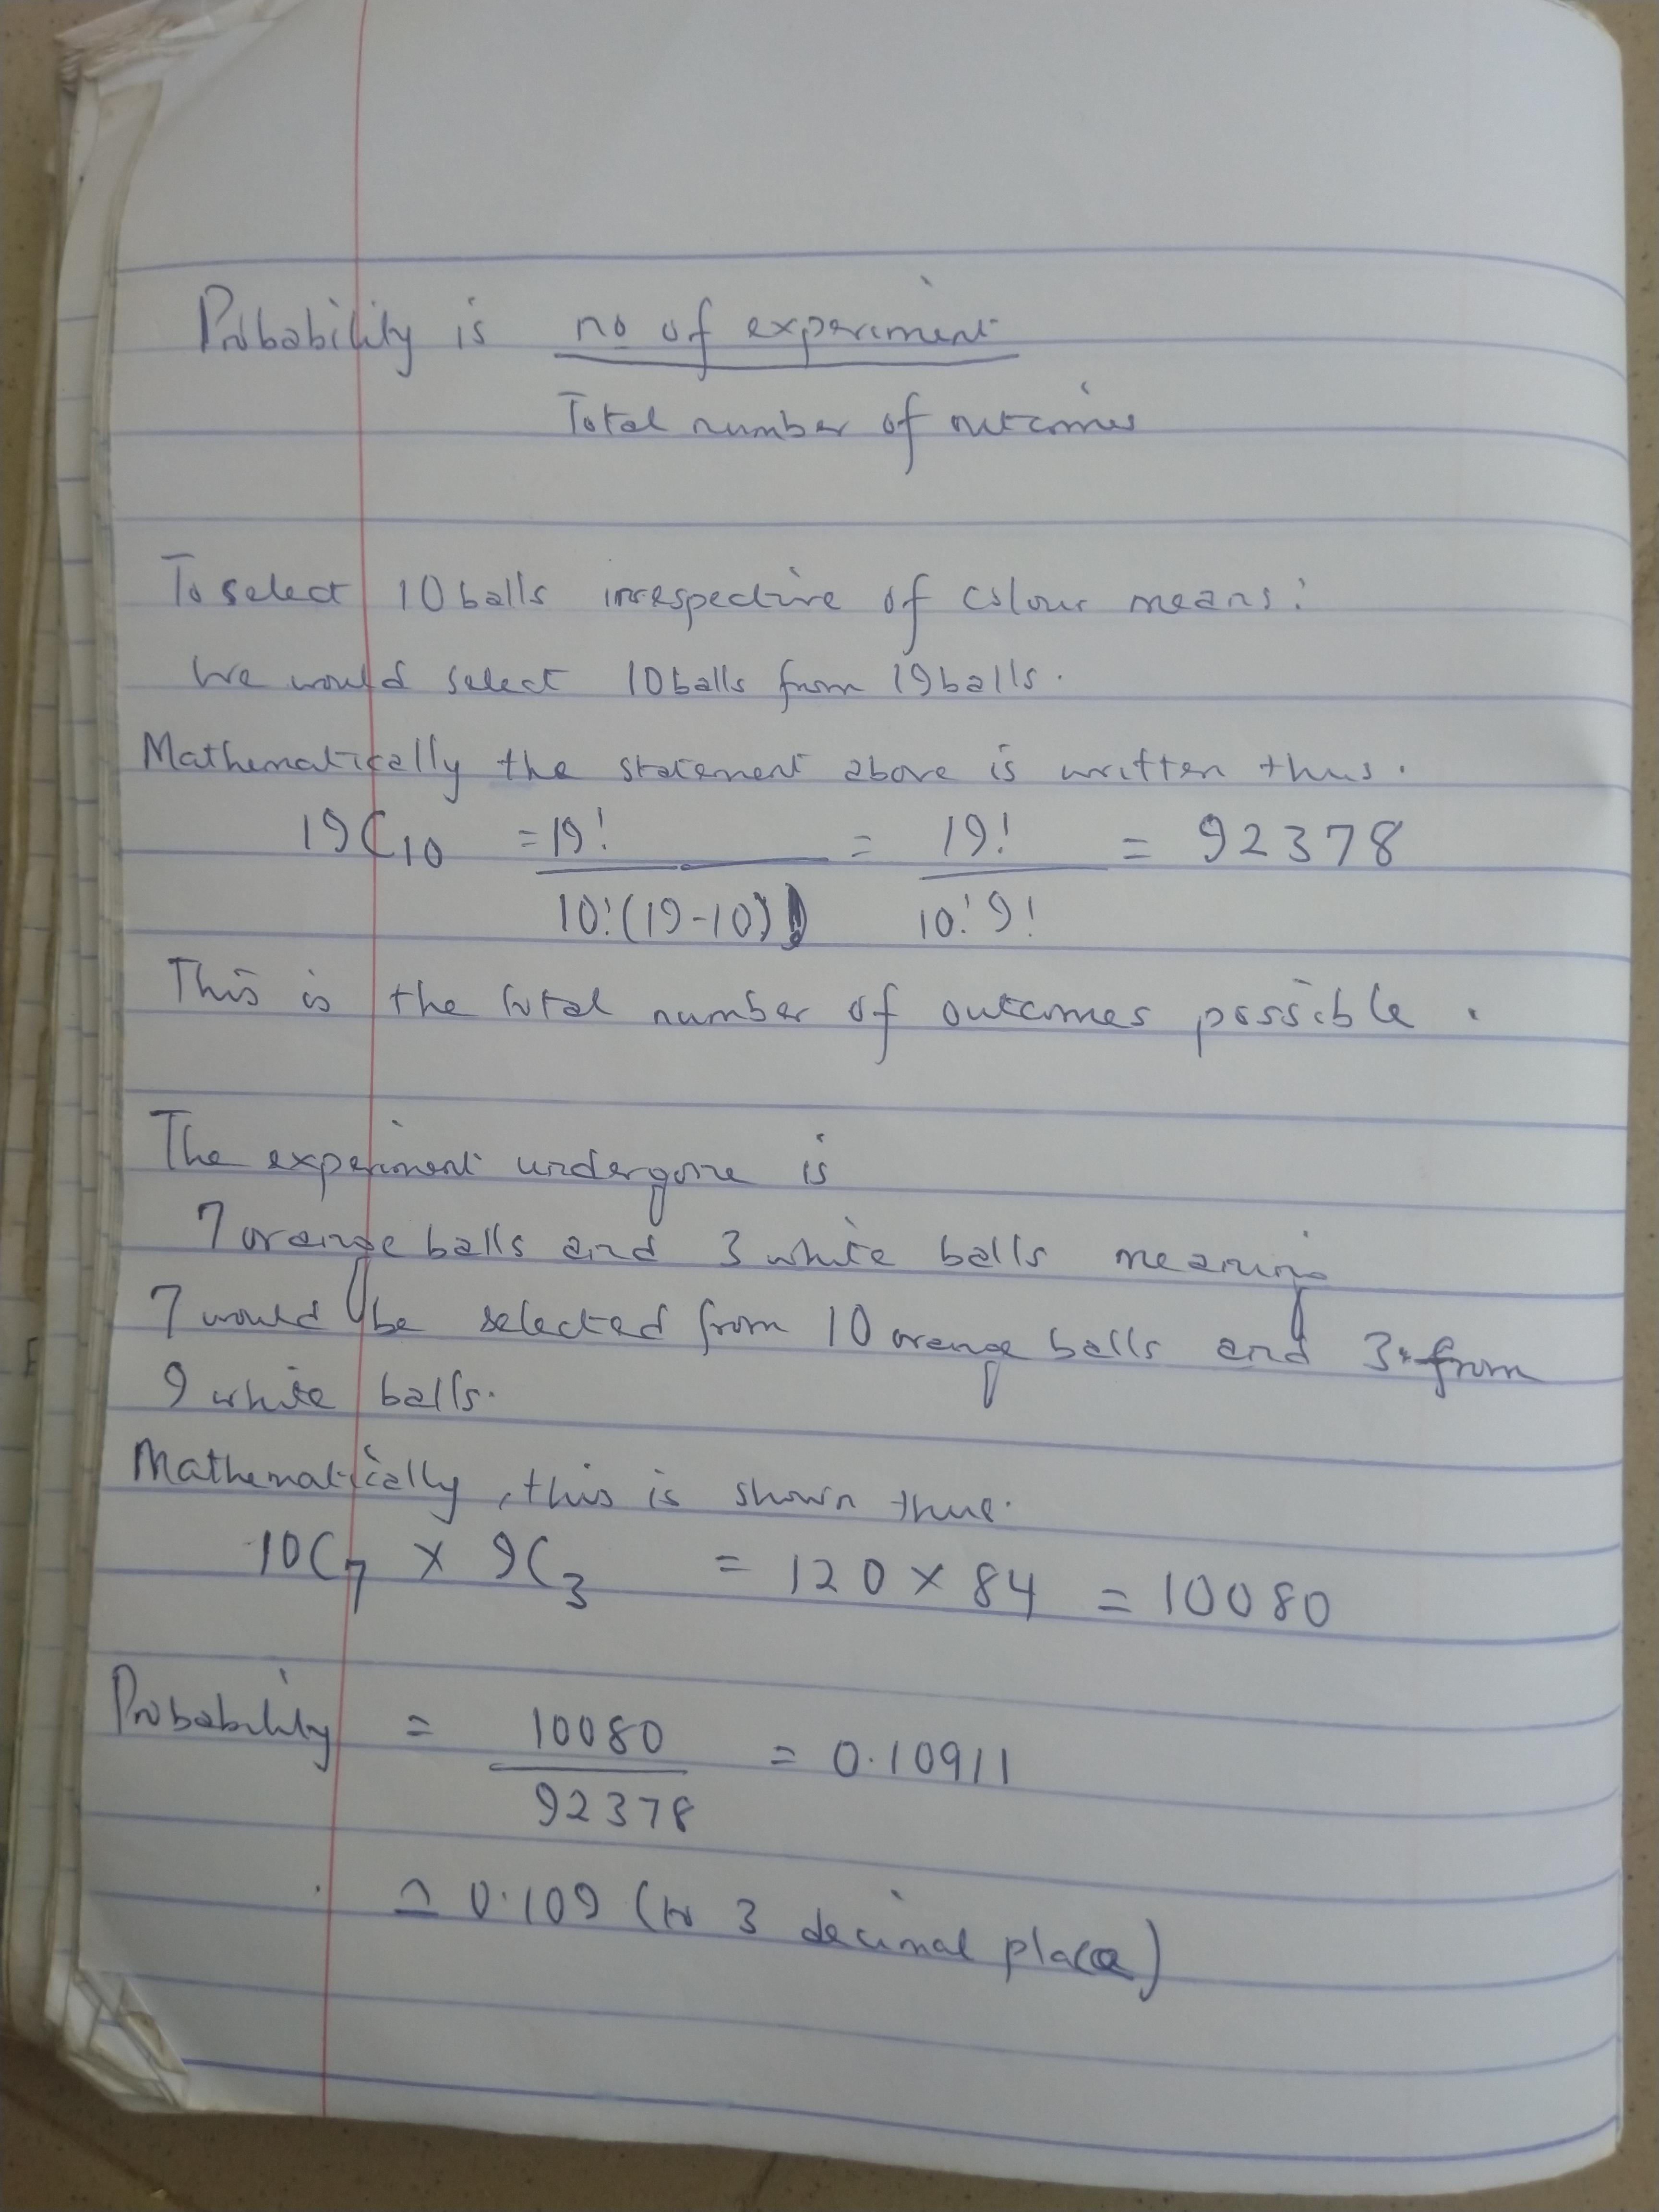 Probability is no of experiment
Total number of outcomes
To select 10 balls irrespective of colour means:
We would select 10 balls from 19 balls.
Mathematically the statement above is written thus.
19C10 = 19! / 10!(19-10)! = 19! / 10!9! = 92378
This is the total number of outcomes possible.
The experiment undergone is
7 orange balls and 3 white balls meaning
7 would be selected from 10 orange balls and 3 from
9 white balls.
Mathematically, this is shown thus.
10C7 × 9C3 = 120 × 84 = 10080
Probability = 10080 / 92378 = 0.10911
≃ 0.109 (to 3 decimal place)